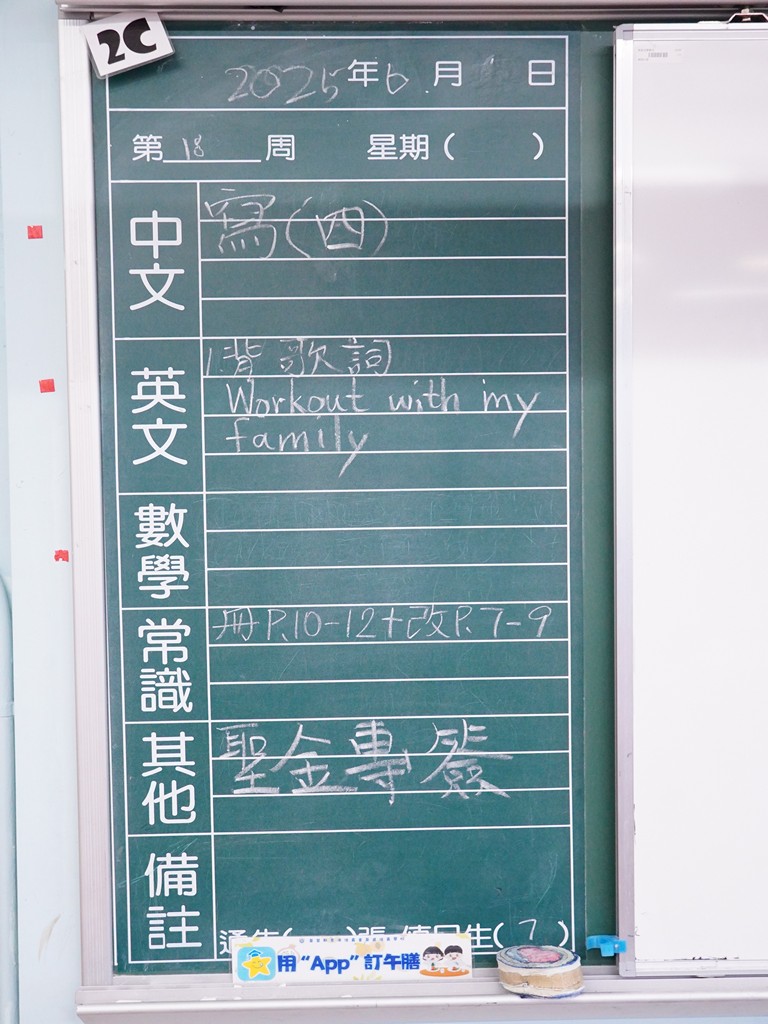 2C
2025年6月 日
第18周 星期( )
中文
寫(四)
英文
1.背歌詞
Workout with my
family
數學
常識
冊P.10-12+改P.7-9
其他
聖金專簽
備註
生(7)
用“App”訂午膳